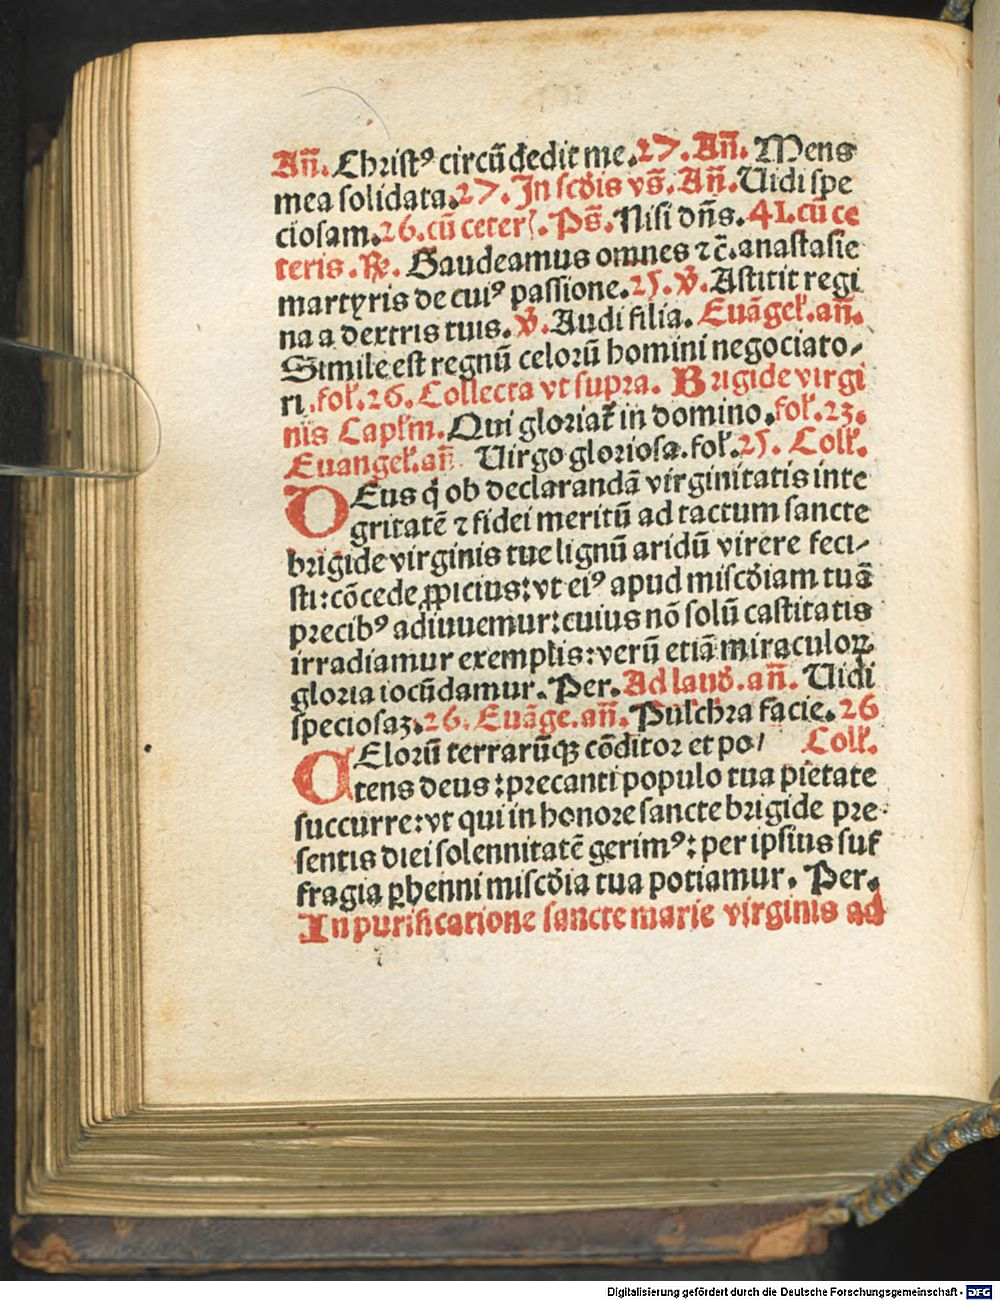 Añ. Christꝰ circũdedit me. 27. Añ. Mens
mea solidata. 27. In scd̄is vs̄. Añ. Uidi spe
ciosam. 26. cũ ceter(. Ps̄. Nisi dñs. 41. cũ ce
teris. ℞. Gaudeamus omnes ⁊ c̄. anastasie
martyris de cuiꝰ passione. 25. ℣. Astitit regi
na a dextris tuis. ℣. Audi filia. Euãgeł. añ.
Simile est regnũ celorũ homini negociato⸗
ri. foł. 26. Collecta vt supra. Brigide virgi
nis Capłm. Qui gloriat̃ in domino. foł. 23.
Euangeł. añ Uirgo gloriosa. foł. 25. Colł.
DEus q̇ ob declarandã virginitatis inte
gritatẽ ⁊ fidei meritũ ad tactum sancte
brigide virginis tue lignũ aridũ virere feci⸗
sti: cõcede ꝓpicius: vt eiꝰ apud miscd̄iam tuã
precibꝰ adiuuemur: cuius nõ solũ castitatis
irradiamur exemplis: verũ etiã miraculoꝝ
gloria iocũdamur. Per. Ad laud̄. añ. Uidi
speciosaꝫ. 26. Euãge. añ. Pulchra facie. 26
CElorũ terrarũqꝫ cõditor et po/ Colł.
tens deus: precanti populo tua pietate
succurre: vt qui in honore sancte brigide pre⸗
sentis diei solennitatẽ gerimꝰ: per ipsius suf
fragia ꝑhenni miscd̄ia tua potiamur. Per.
In purificatione sancte marie virginis ad
Digitalisierung gefördert durch die Deutsche Forschungsgemeinschaft - DFG